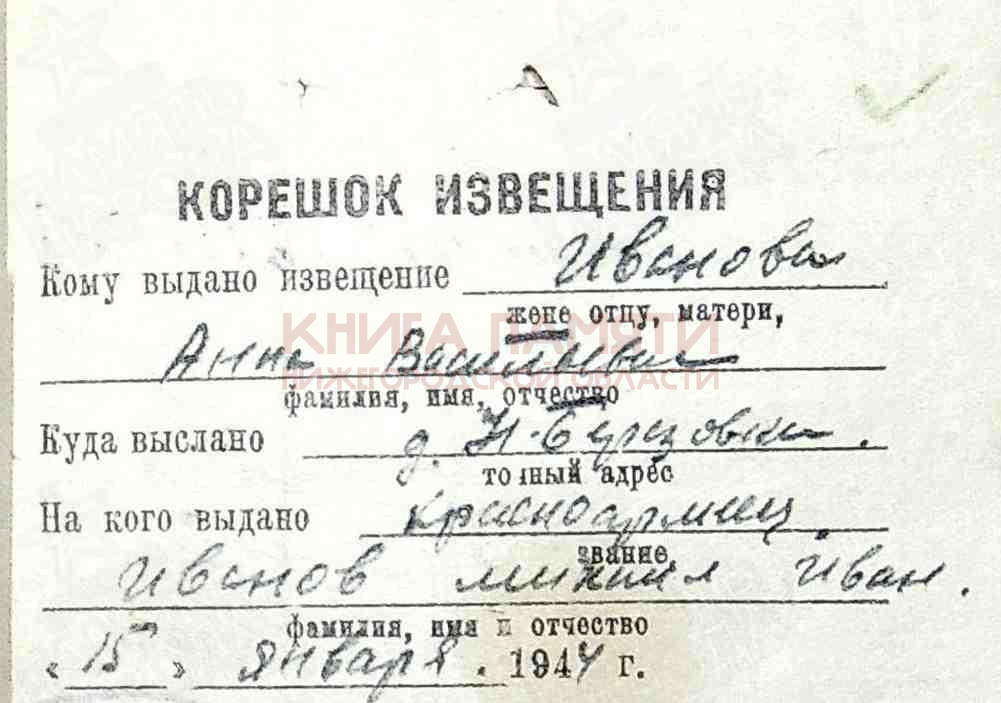 КОРЕШОК ИЗВЕЩЕНИЯ
Кому выдано извещение Иванова
жене отцу, матери,
КНИГА ПАМЯТИ
Анна Васильевна
НИЖЕГОРОДСКОЙ ОБЛАСТИ
фамилия, имя, отчество
Куда выслано д. Н-Березовка.
точный адрес
На кого выдано красноармеец
звание
Иванов михаил Иван.
фамилия, имя и отчество
"15" января. 1944 г.